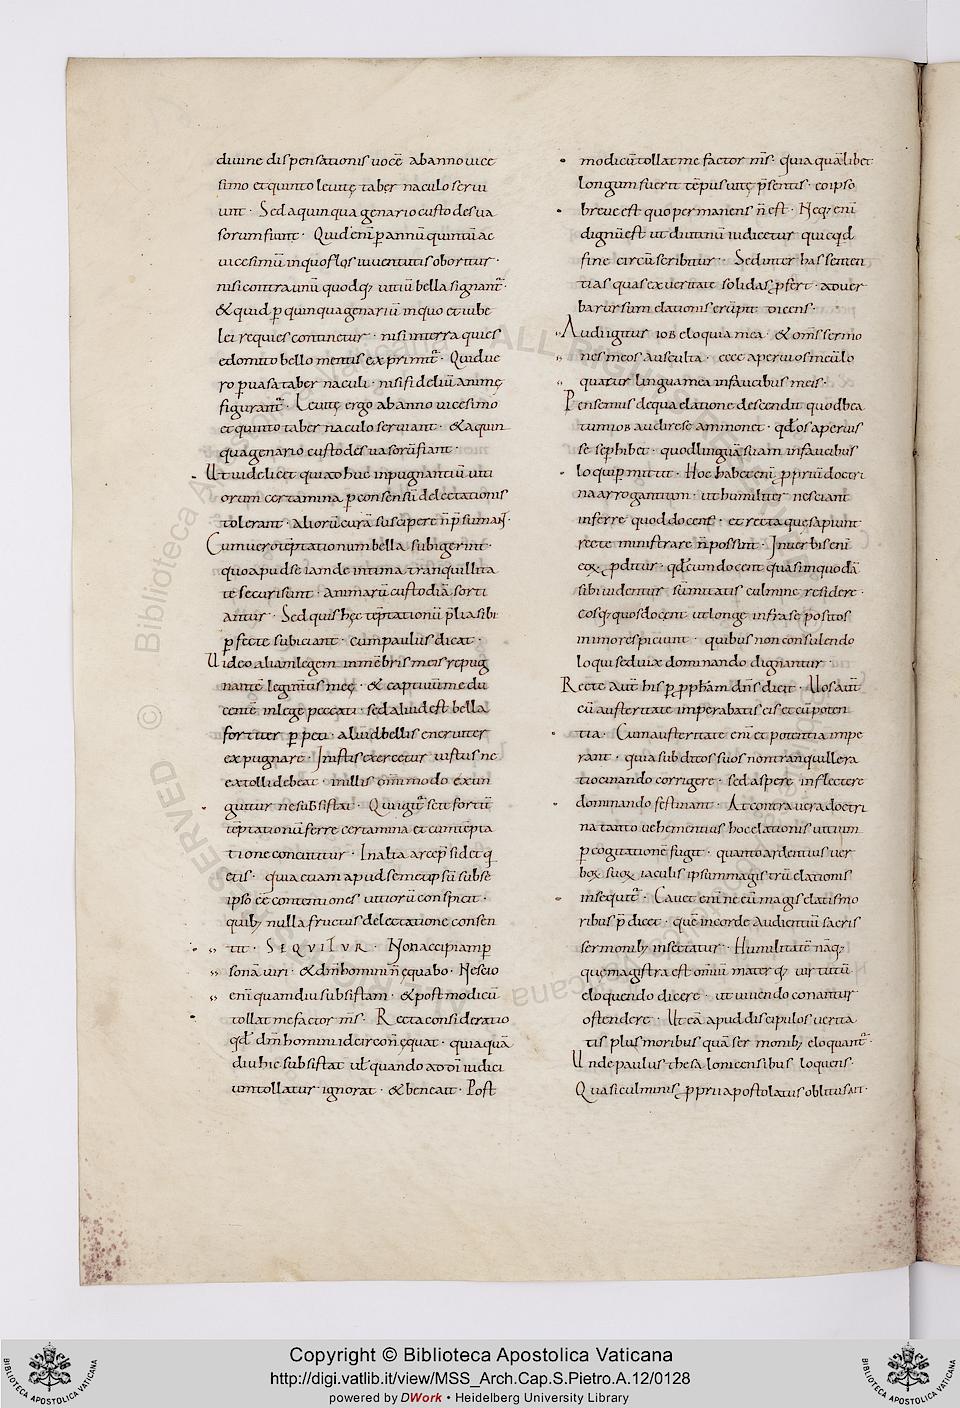 diuine dispensationis uocē ab anno uice
simo et quinto leuitę tabernaculo serui
unt · Sed a quinquagenario custodes ua
sorum fiunt · Quid enī p annū quintū ac
uicesimū in quo flos iuuentutis oboritur ·
nisi contra unū quodq; uitiū bella signant ·
& quid p quinquagenariū in quo et iube
lei requies continetur · nisi interra quies
edomito bello mentis exprimit · Quid ue
ro p uasa tabernaculi · nisi fideliū animę
figurant · Leuitę ergo ab anno uicesimo
et quinto tabernaculo seruiant · & a quin
quagenario custodes uasorū fiant ·
Ut uidelicet qui adhuc inpugnantiū uiti
orum certamina p consensū delectationis
tolerant · aliorū curā suscipere n̄ p̄sumant ·
Cum uero tēptationum bella subigerint ·
quo apud se iam de intima tranquillita
te securi sunt · animarū custodiā sorti
antur · Sed quis hęc tēptationū p̄lia sibi
pfecte subiciant · cum paulus dicat ·
Uideo aliam legem in mēbris meis repug
nantē legi mentis meę · & captiuū me du
centē in lege peccati · sed aliud est bella
fortiter p peti · aliud bellis eneruiter
expugnari · In istis exercetur uirtus ne
extolli debeat · in illis om̄imodo extin
guitur ne subsistat · Qui igit scit fortit
tēptationū ferre certamina et cum tēpta
tione concutitur · In alta arcē p̄sidet q
etis · quia etiam apud semet ipsū subse
ipso eē contentiones uitiorū conspicit ·
quib; nulla fructus delectatione consen
tit · SEQUITUR · Non accipiam p
sonā uiri · & dm̄ homini n̄ ęquabo · Nescio
enī quamdiu subsistam · & post modicū
tollat me factor m̄s · Recta consideratio
qd dm̄ homini idcirco n̄ ęquat · quia quā
diu hic subsistat ut quando ad dī iudici
um tollatur ignorat · & bene ait · Post
modicū tollat me factor m̄s · quia quālibet
longum fuerit tēpus uitę p̄sentis · eo ipso
breue est quo permanens n̄ est · Neq; enī
dignū est ut diutinū iudicetur quicqd
fine circūscribitur · Sed inter has senten
tias quas ex ueritate solidas pfert · ad uer
ba rursum elationis erūpit dicens ·
Audi igitur iob eloquia mea · & om̄s sermo
nes meos ausculta · ecce aperui os meū lo
quatur lingua mea in faucibus meis ·
Pensemus de qua elatione descendit quod bea
tum iob audire se ammonet · qd os aperuis
se se phibet · quod linguā suam in faucibus
loqui pmittit · Hoc habet enī ppriū doctri
na arrogantium · ut humiliter nesciant
inferre quod docent · et recta que sapiunt
recte ministrare n̄ possint · In uerbis enī
eoꝝ pditur · qd cum docent quasi in quodā
sibi uidentur sūmitatis culmine residere ·
eosq; quos docent ut longe infra se positos
in imo respiciunt · quibus non consulendo
loqui sed uix dominando dignantur ·
Recte aut̄ his p pphām dn̄s dicit · Uos aut̄
cū austeritate imperabatis eis et cū poten
tia · Cum austeritate enī et potentia impe
rant · qui a subditos suos non tranquille ra
tiocinando corrigere · sed aspere inflectere
dominando festinant · At contra uera doctri
na tanto uehementius hoc elationis uitium
p cogitationē fugit · quanto ardentius uer
boꝝ suoꝝ iaculis ipsum magistrū elationis
insequit · Cauet enī ne eū magis elatis mo
ribus p̄dicet · quē in corde audientiū sacris
sermonib; insectatur · Humilitatē nāq;
que magistra est om̄iū materq; uirtutū
et loquendo dicere · ut uiuendo conantur
ostendere · Ut eā apud discipulos uerita
tis plus moribus quā sermonib; eloquant ·
Unde paulus thesalonicensibus loquens ·
Quasi culminis pprii apostolatus oblitus ait ·
Copyright © Biblioteca Apostolica Vaticana
http://digi.vatlib.it/view/MSS_Arch.Cap.S.Pietro.A.12/0128
powered by DWork • Heidelberg University Library